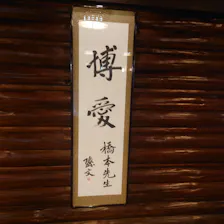 博愛
橋本先生
孫文